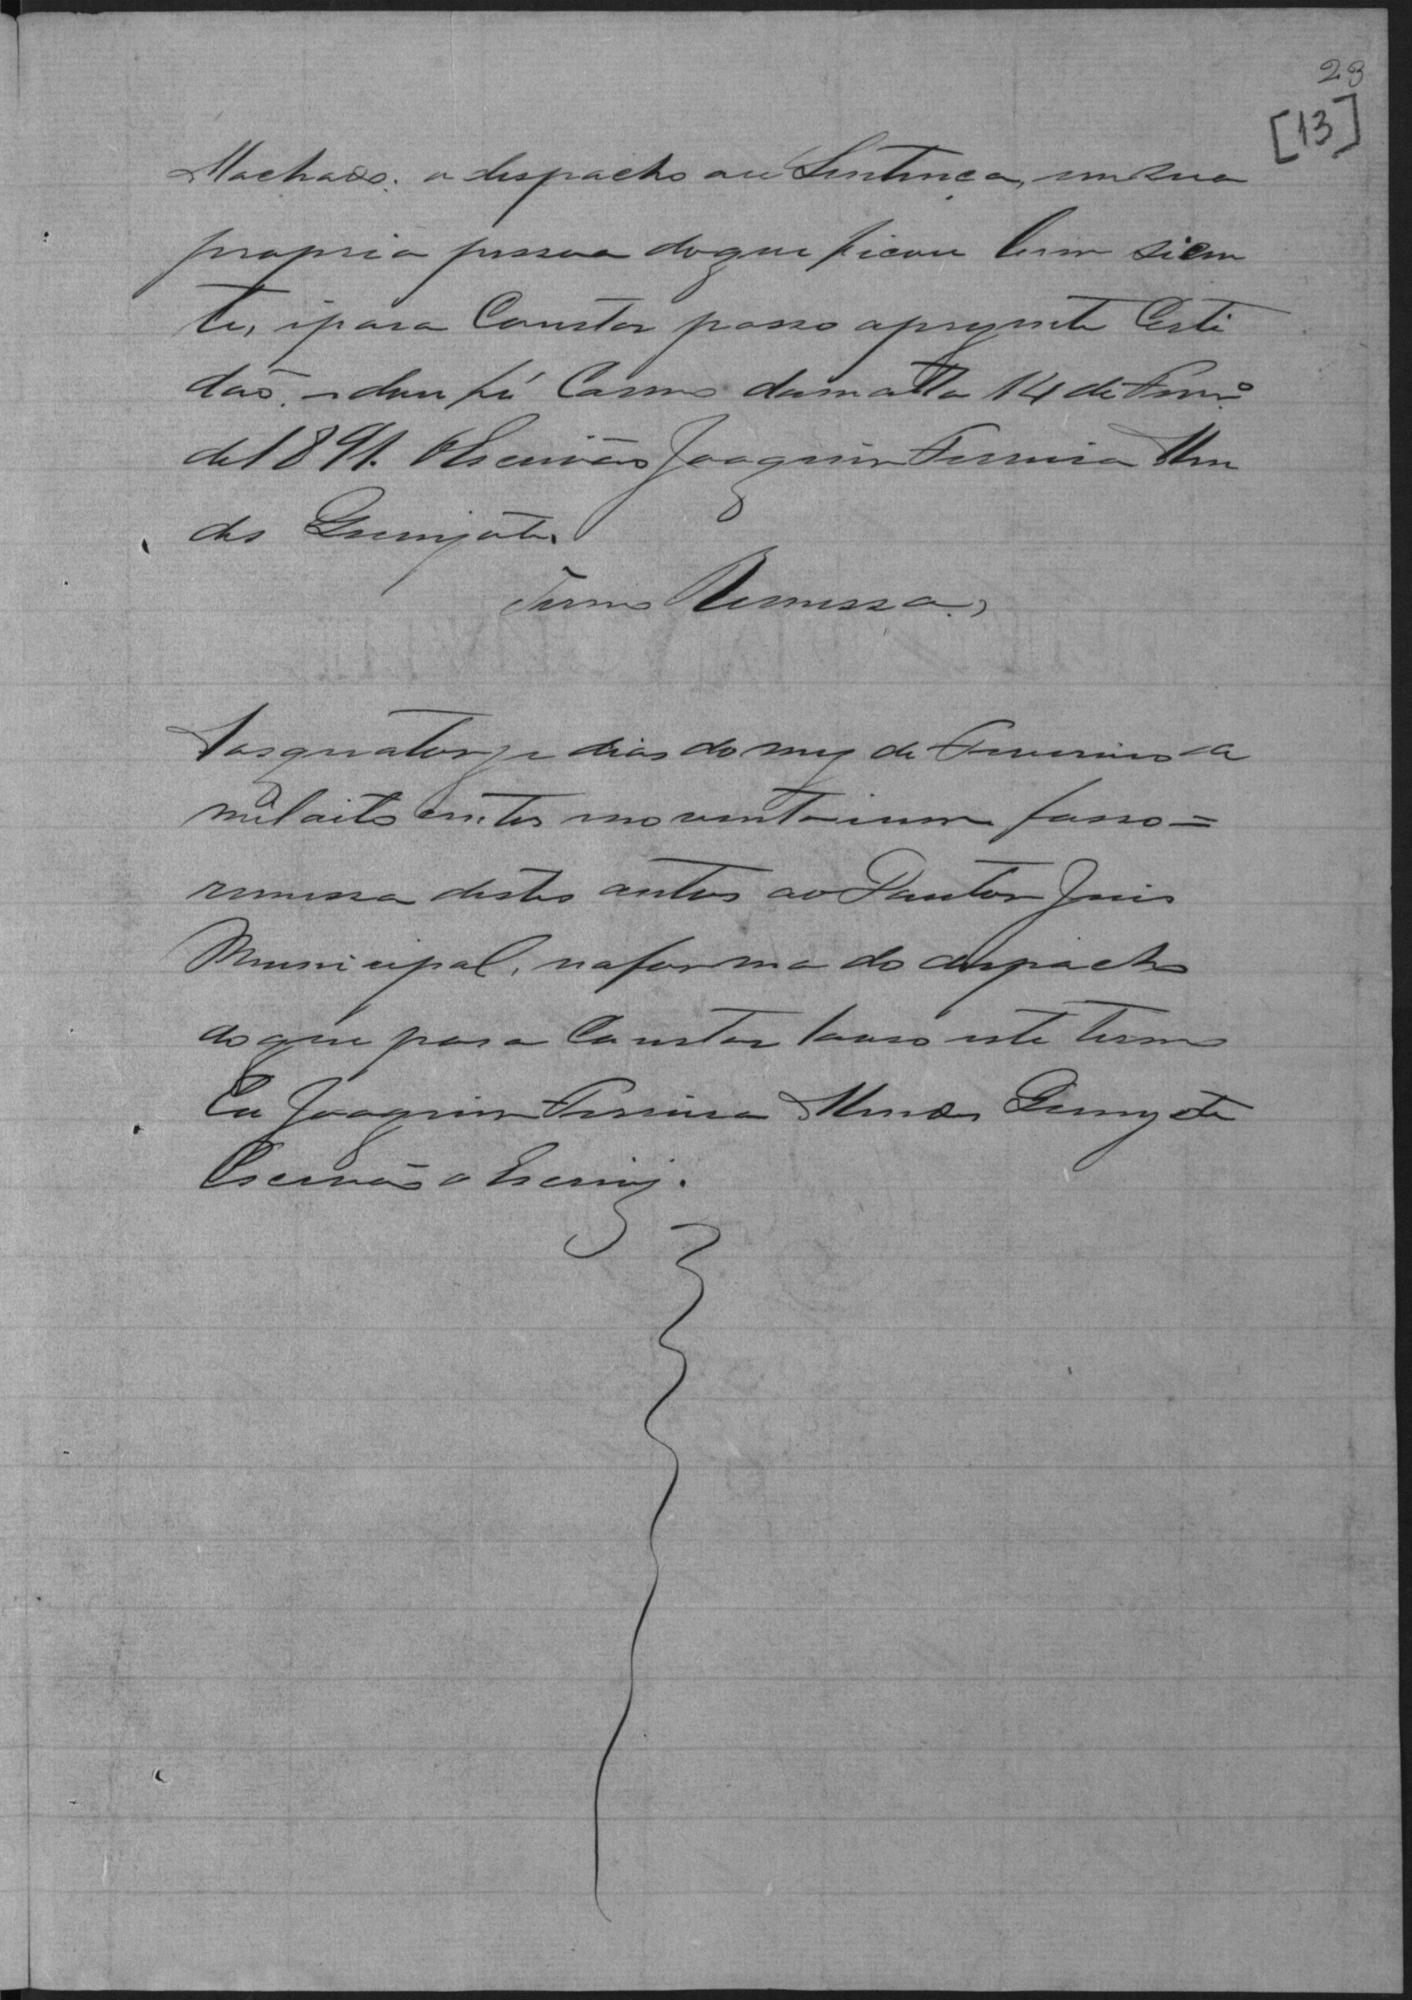 23
[13]
Machado. o despacho ou Sentença, em sua
propria pessoa do que ficou bem sien
te, e para Constar passo a prezente Certi
dão. e dou fé Carmo da matta 14 de Fevrº
de 1891. O Escrivão Joaquim Ferreira Men
des
Termo Remessa.
Aos quatorze dias do mez de Fevereiro de
mil oito centos noventa e um fasso =
remessa destes autos ao Doutor Juis
Municipal, na forma do despacho
do que para Constar lavro este termo
Eu Joaquim Ferreira Mendes
Escrivão o Escrivi.